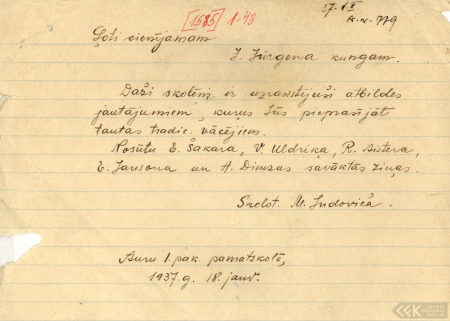 [1585] 1-43
27. II
K. N. 779
Ļoti cienījamam
J. Jürgena kungam.
Daži skolēni ir uzrakstījuši atbildes
jautājumiem, kuŗus Jūs pieprasījāt
tautas tradic. vācējiem.
Nosūtu E. Šakara, V. Uldriķa, R.
E. Jansona un A. Dimzas savāktās ziņas.
Skolot. M. Ludoviča.
Auru I. pak. pamatskolā,
1937. g. 18. janv.